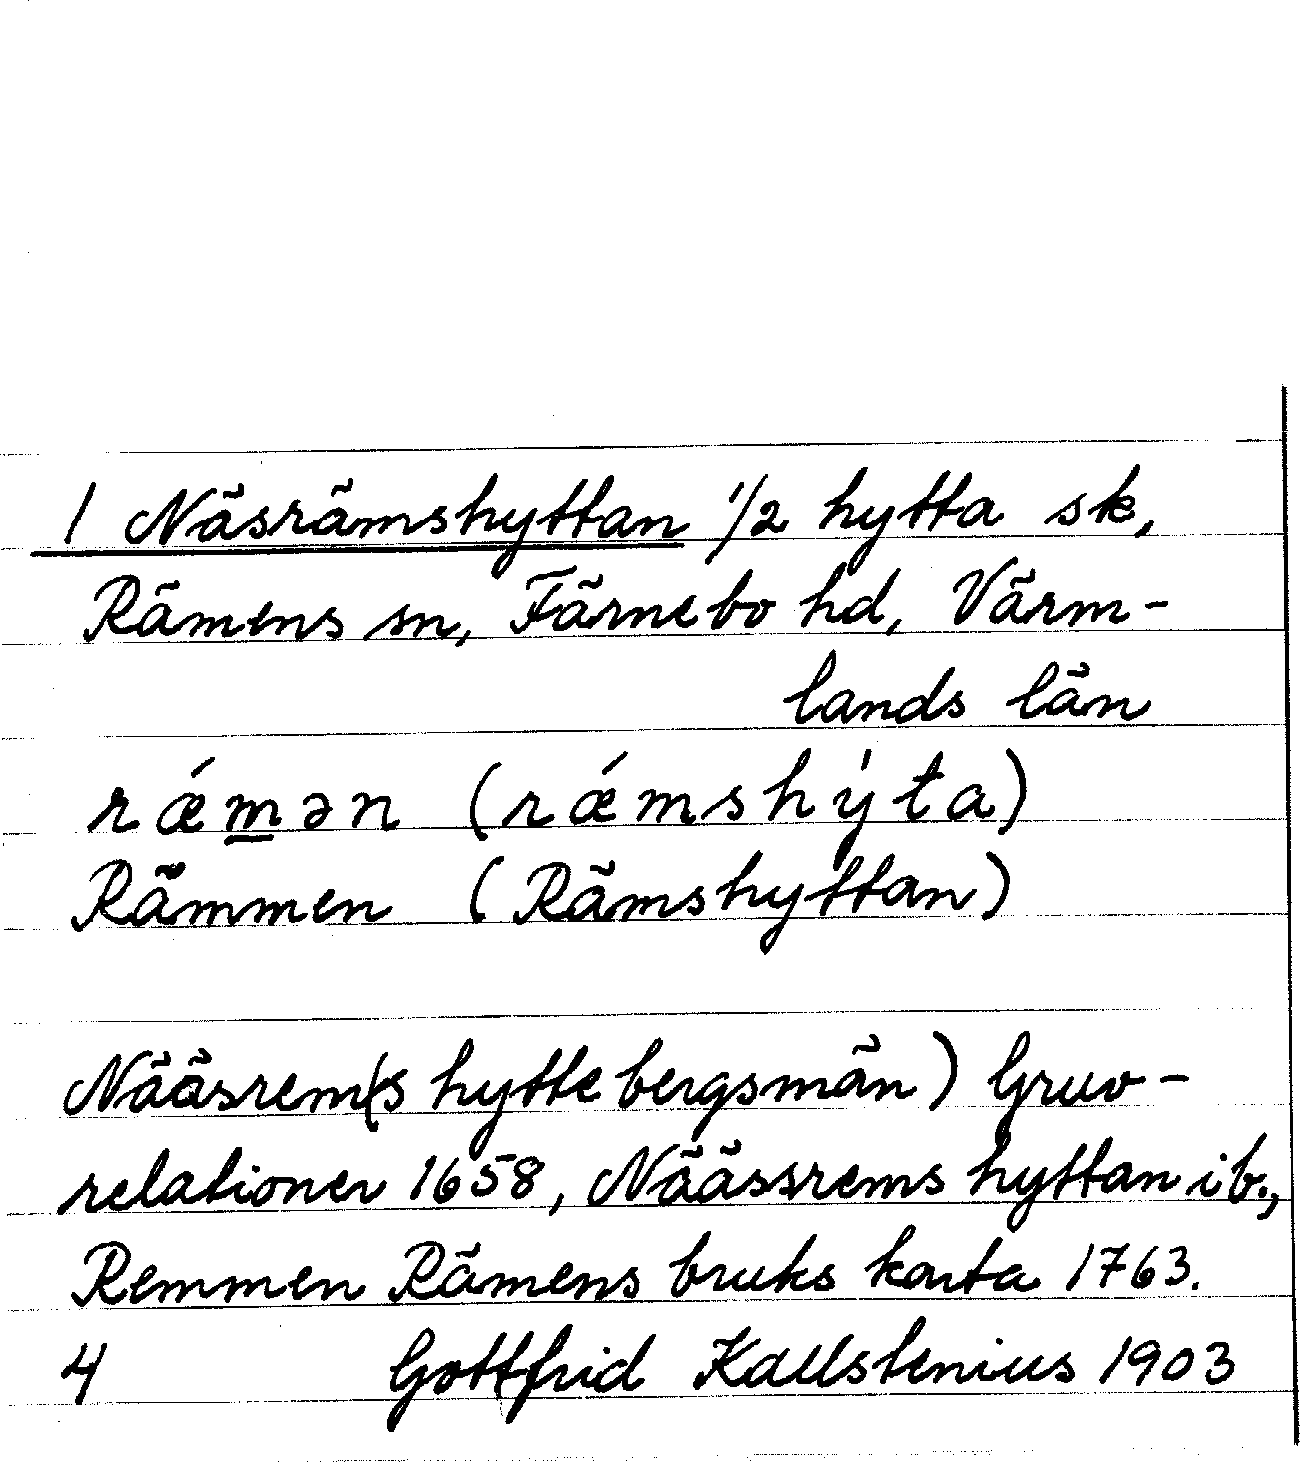 1 Näsrämshyttan 1/2 hytta sk,
Rämens sn, Färnebo hd, Värm-
lands län
rǽm̲ən (rǽmshy̍ta)
Rämmen (Rämshyttan)
Nääsrem(s hyttebergsmän) Gruv-
relationer 1658, Näässrems hyttan ib.,
Remmen Rämens bruks karta 1763.
4 Gottfrid Kallstenius 1903